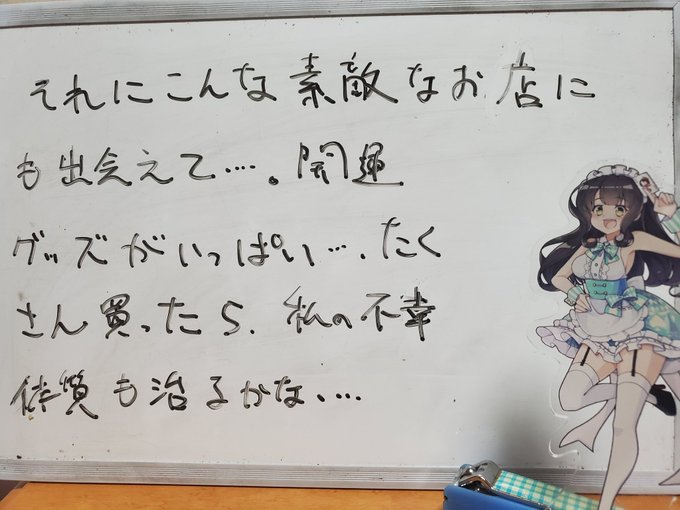 それにこんな素敵なお店に
も出会えて…。開運
グッズがいっぱい…、たく
さん買ったら、私の不幸
体質も治るかな、…